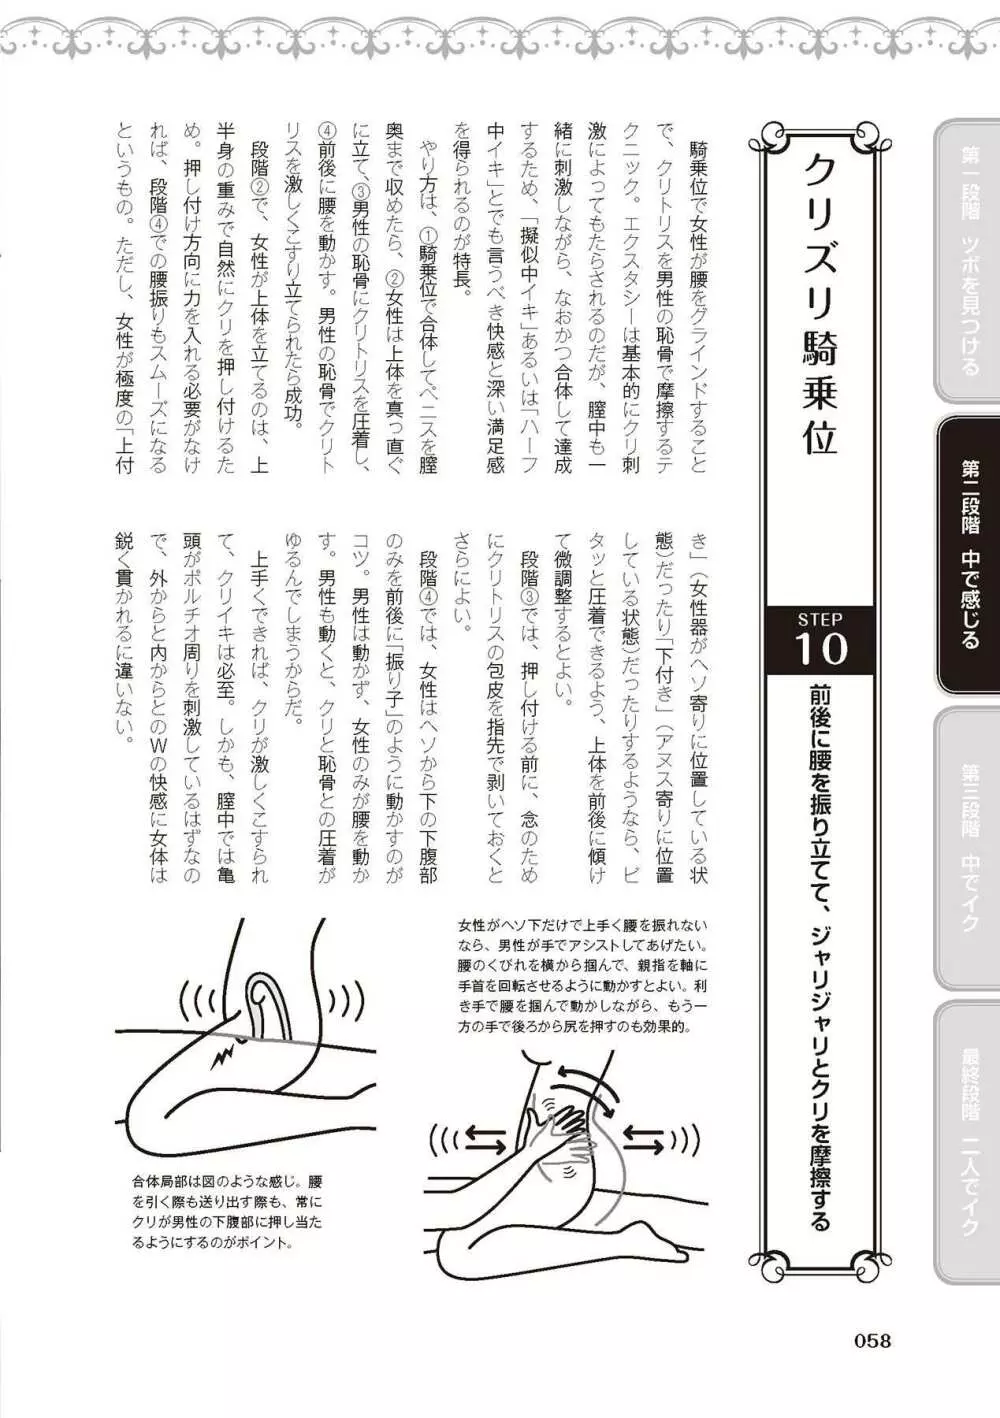 クリズリ騎乗位
STEP
10
前後に腰を振り立てて、ジャリジャリとクリを摩擦する
騎乗位で女性が腰をグラインドすること
で、クリトリスを男性の恥骨で摩擦するテ
クニック。エクスタシーは基本的にクリ刺
激によってもたらされるのだが、膣中も一
緒に刺激しながら、なおかつ合体して達成
するため、「擬似中イキ」あるいは「ハーフ
中イキ」とでも言うべき快感と深い満足感
を得られるのが特長。
やり方は、①騎乗位で合体してペニスを膣
奥まで収めたら、②女性は上体を真っ直ぐ
に立て、③男性の恥骨にクリトリスを圧着し、
④前後に腰を動かす。男性の恥骨でクリト
リスを激しくこすり立てられたら成功。
段階②で、女性が上体を立てるのは、上
半身の重みで自然にクリを押し付けるた
め。押し付け方向に力を入れる必要がなけ
れば、段階④での腰振りもスムーズになる
というもの。ただし、女性が極度の「上付
き」（女性器がヘソ寄りに位置している状
態）だったり「下付き」（アヌス寄りに位置
している状態）だったりするようなら、ピ
タッと圧着できるよう、上体を前後に傾け
て微調整するとよい。
段階③では、押し付ける前に、念のため
にクリトリスの包皮を指先で剥いておくと
さらによい。
段階④では、女性はヘソから下の下腹部
のみを前後に「振り子」のように動かすのが
コツ。男性は動かず、女性のみが腰を動か
す。男性も動くと、クリと恥骨との圧着が
ゆるんでしまうからだ。
上手くできれば、クリが激しくこすられ
て、クリイキは必至。しかも、膣中では亀
頭がポルチオ周りを刺激しているはずなの
で、外からと内からとのWの快感に女体は
鋭く貫かれるに違いない。
女性がヘソ下だけで上手く腰を振れない
なら、男性が手でアシストしてあげたい。
腰のくびれを横から掴んで、親指を軸に
手首を回転させるように動かすとよい。利
き手で腰を掴んで動かしながら、もう一
方の手で後ろから尻を押すのも効果的。
合体局部は図のような感じ。腰
を引く際も送り出す際も、常に
クリが男性の下腹部に押し当た
るようにするのがポイント。
第一段階 ツボを見つける
第二段階 中で感じる
第三段階 中でイク
最終段階 二人でイク
058